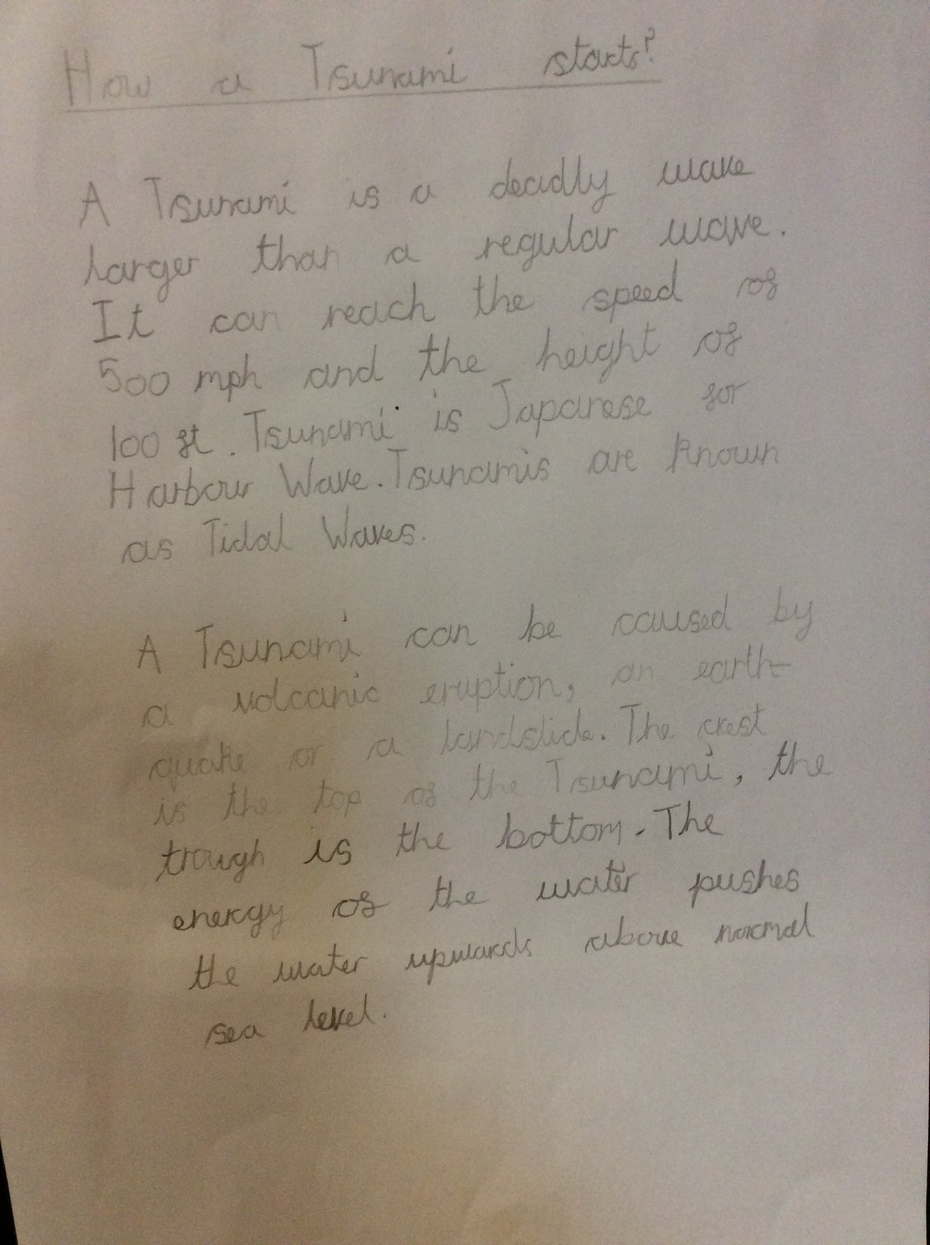 How a Tsunami starts?
A Tsunami is a deadly wave
larger than a regular wave.
It can reach the speed of
500 mph and the height of
100 ft. Tsunami is Japanese for
Harbour Wave. Tsunamis are known
as Tidal Waves.
A Tsunami can be caused by
a volcanic eruption, an earth-
quake or a landslide. The crest
is the top of the Tsunami, the
trough is the bottom. The
energy of the water pushes
the water upwards above normal
sea level.